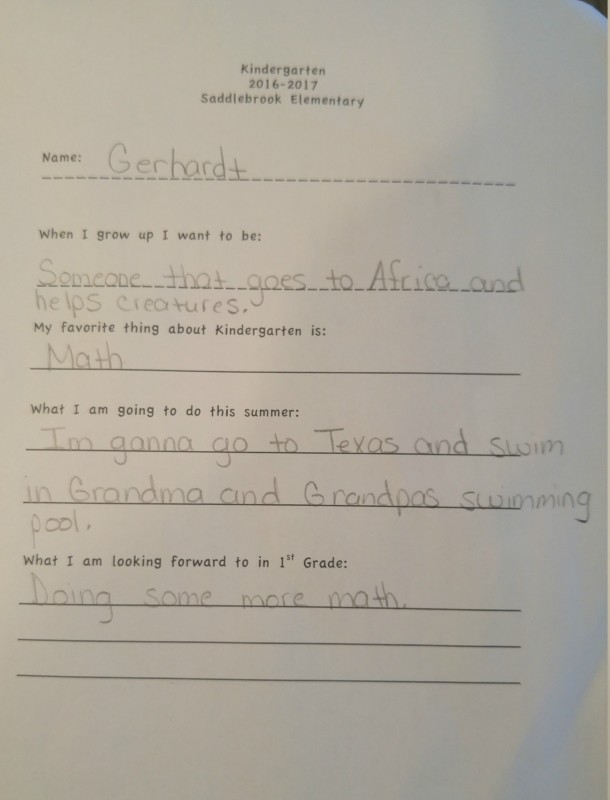 Kindergarten
2016-2017
Saddlebrook Elementary
Name: Gerhardt
When I grow up I want to be:
Someone that goes to Africa and
helps creatures.
My favorite thing about Kindergarten is:
Math
What I am going to do this summer:
Im ganna go to Texas and swim
in Grandma and Grandpas swimming
pool.
What I am looking forward to in 1st Grade:
Doing some more math.